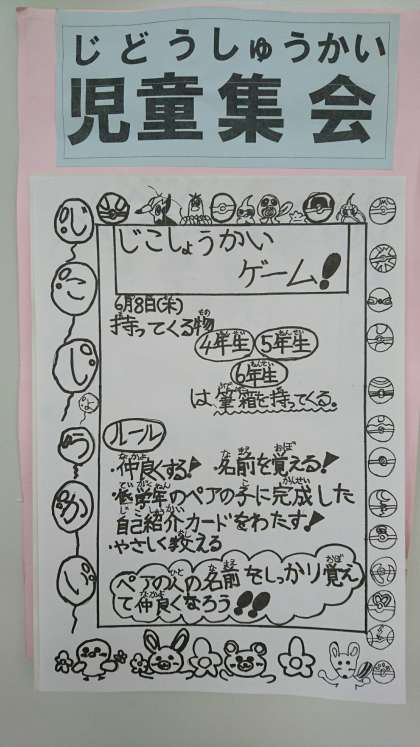 じどうしゅうかい
児童集会
じこしょうかい
じこしょうかい
ゲーム!!
6月8日(木)
持ってくる物
4年生 5年生
6年生
は筆箱を持ってくる。
ルール
・仲良くする! 名前を覚える!
・低学年のペアの子に完成した
自己紹介カードをわたす!
・やさしく教える
ペアの人の名前をしっかり覚え
て仲良くなろう!!